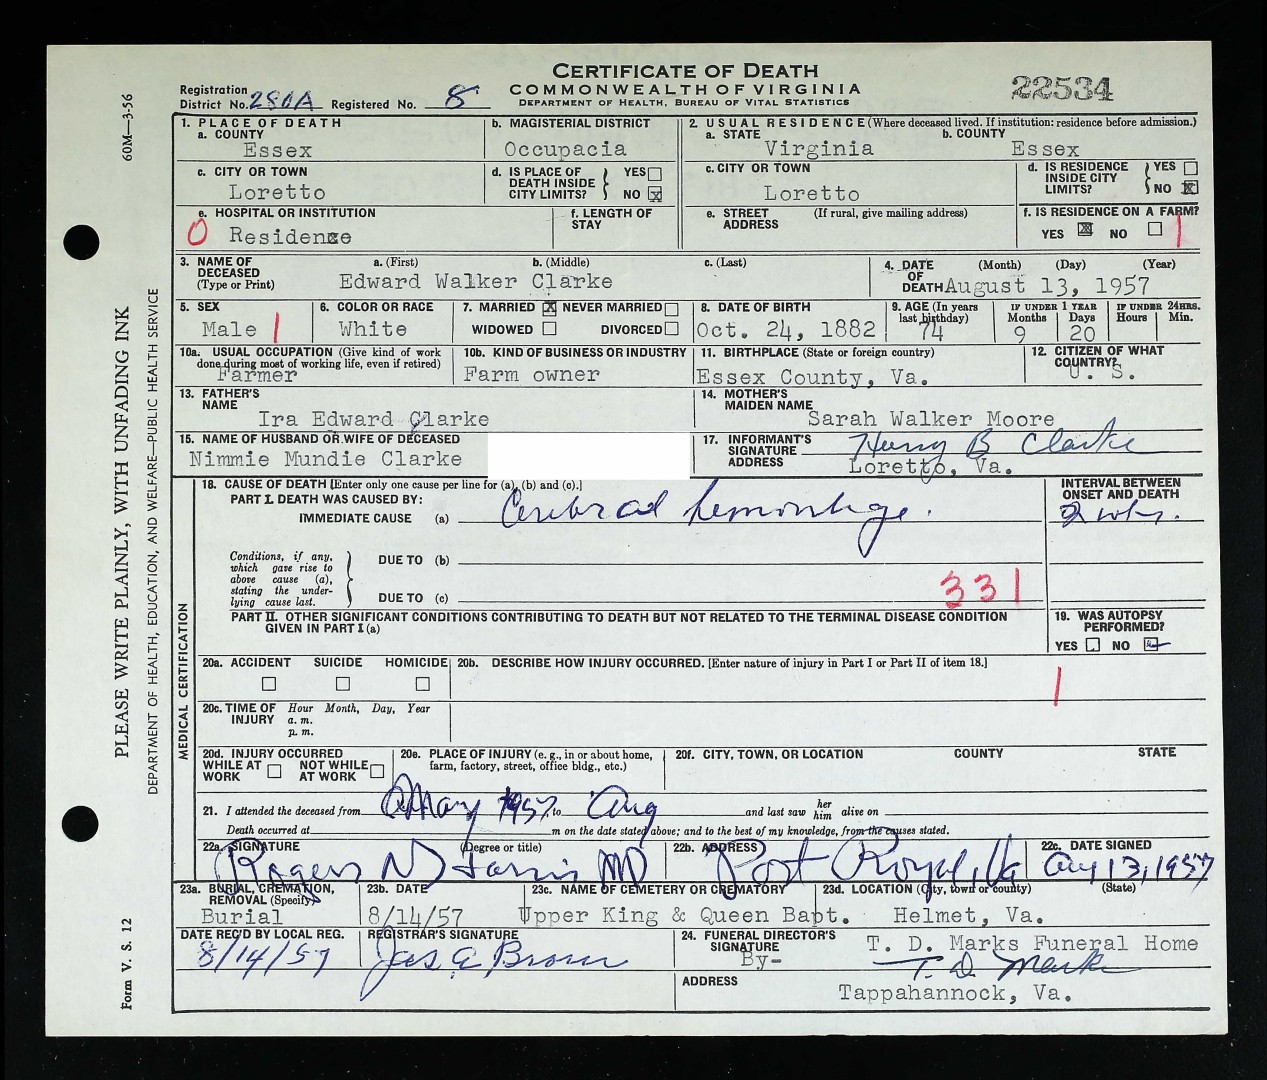 CERTIFICATE OF DEATH
COMMONWEALTH OF VIRGINIA
DEPARTMENT OF HEALTH, BUREAU OF VITAL STATISTICS
22534
Registration
District No. 280A Registered No. 8
60M—3-56
PLEASE WRITE PLAINLY, WITH UNFADING INK
DEPARTMENT OF HEALTH, EDUCATION, AND WELFARE—PUBLIC HEALTH SERVICE
Form V. S. 12
1. PLACE OF DEATH
a. COUNTY
Essex
b. MAGISTERIAL DISTRICT
Occupacia
2. USUAL RESIDENCE (Where deceased lived. If institution: residence before admission.)
a. STATE b. COUNTY
Virginia Essex
c. CITY OR TOWN
Loretto
d. IS PLACE OF DEATH INSIDE CITY LIMITS? YES NO X
c. CITY OR TOWN
Loretto
d. IS RESIDENCE INSIDE CITY LIMITS? YES NO X
e. HOSPITAL OR INSTITUTION
0 Residence
f. LENGTH OF STAY
e. STREET ADDRESS (If rural, give mailing address)
f. IS RESIDENCE ON A FARM?
YES X NO 1
3. NAME OF DECEASED (Type or Print)
a. (First) b. (Middle) c. (Last)
Edward Walker Clarke
4. DATE OF DEATH (Month) (Day) (Year)
August 13, 1957
5. SEX
Male 1
6. COLOR OR RACE
White
7. MARRIED X NEVER MARRIED
WIDOWED DIVORCED
8. DATE OF BIRTH
Oct. 24, 1882
9. AGE (In years last birthday)
74
IF UNDER 1 YEAR
Months Days
9 20
IF UNDER 24HRS.
Hours Min.
10a. USUAL OCCUPATION (Give kind of work done during most of working life, even if retired)
Farmer
10b. KIND OF BUSINESS OR INDUSTRY
Farm owner
11. BIRTHPLACE (State or foreign country)
Essex County, Va.
12. CITIZEN OF WHAT COUNTRY?
U. S.
13. FATHER'S NAME
Ira Edward Clarke
14. MOTHER'S MAIDEN NAME
Sarah Walker Moore
15. NAME OF HUSBAND OR WIFE OF DECEASED
Nimmie Mundie Clarke
17. INFORMANT'S SIGNATURE Henry B Clarke
ADDRESS Loretto, Va.
MEDICAL CERTIFICATION
18. CAUSE OF DEATH [Enter only one cause per line for (a), (b) and (c).]
PART I. DEATH WAS CAUSED BY:
IMMEDIATE CAUSE (a) Cerebral hemorrhage.
INTERVAL BETWEEN ONSET AND DEATH
2 wks.
Conditions, if any, which gave rise to above cause (a), stating the underlying cause last.
DUE TO (b)
DUE TO (c)
331
PART II. OTHER SIGNIFICANT CONDITIONS CONTRIBUTING TO DEATH BUT NOT RELATED TO THE TERMINAL DISEASE CONDITION GIVEN IN PART I (a)
19. WAS AUTOPSY PERFORMED?
YES NO
20a. ACCIDENT SUICIDE HOMICIDE
20b. DESCRIBE HOW INJURY OCCURRED. [Enter nature of injury in Part I or Part II of item 18.]
1
20c. TIME OF INJURY Hour Month, Day, Year
a. m.
p. m.
20d. INJURY OCCURRED
WHILE AT WORK NOT WHILE AT WORK
20e. PLACE OF INJURY (e. g., in or about home, farm, factory, street, office bldg., etc.)
20f. CITY, TOWN, OR LOCATION COUNTY STATE
21. I attended the deceased from May 1957, to Aug and last saw her him alive on
Death occurred at m on the date stated above; and to the best of my knowledge, from the causes stated.
22a. SIGNATURE (Degree or title)
Rogers N Harris MD
22b. ADDRESS
Port Royal, Va
22c. DATE SIGNED
Aug 13, 1957
23a. BURIAL, CREMATION, REMOVAL (Specify)
Burial
23b. DATE
8/14/57
23c. NAME OF CEMETERY OR CREMATORY
Upper King & Queen Bapt.
23d. LOCATION (City, town or county) (State)
Helmet, Va.
DATE REC'D BY LOCAL REG.
8/14/57
REGISTRAR'S SIGNATURE
Jas A Brown
24. FUNERAL DIRECTOR'S SIGNATURE
T. D. Marks Funeral Home
By- T. D. Marks
ADDRESS
Tappahannock, Va.